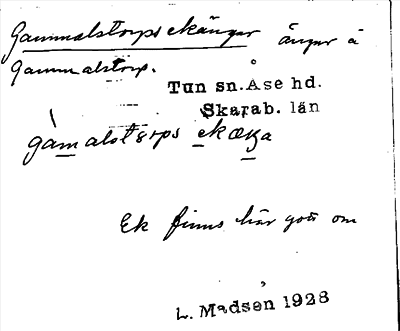 Gammalstorps ekängar ängar å
Gammalstorp.
Tun sn. Åse hd.
Skarab. län
gàmalstorps ekæŋa
Ek finns här gott om
L. Madsén 1928